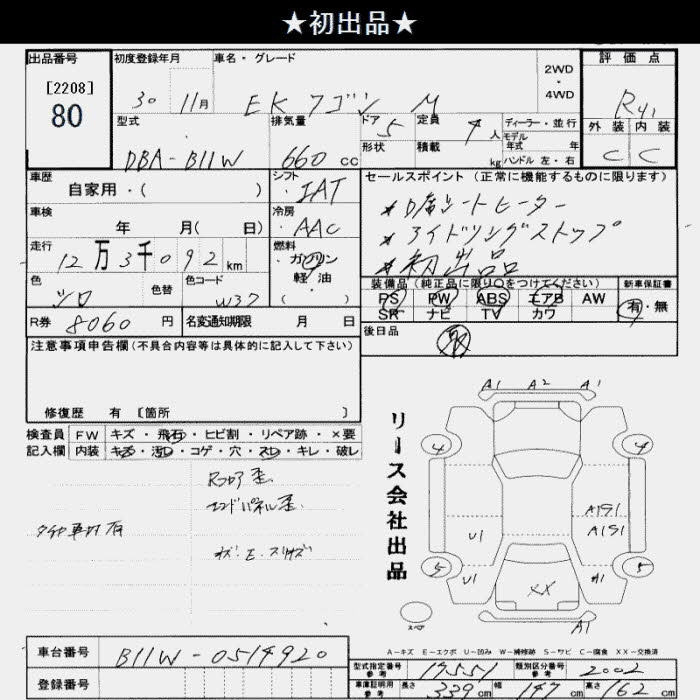 ★初出品★
出品番号 初度登録年月 車名・グレード 2WD・4WD 評価点
[2208]
80
30 11月 EKワゴン M R41
型式 排気量 ドア 5 定員 4人 ディーラー・並行 外装 内装
DBA-B11W 660cc 形状 積載 kg モデル年式 年 ハンドル 左・右 C C
車歴 自家用・( ) シフト ・IAT セールスポイント(正常に機能するものに限ります)
*D席シートヒーター
車検 年 月( 日) 冷房 ・AAC
*アイドリングストップ
走行 12万3千092km 燃料 ガソリン・軽油・( )
*初出品
色 シロ 色替 色コード W37
装備品(純正品に限り○をつけてください) 新車保証書
PS PW ABS エアB AW 有・無
SR ナビ TV カワ
R券 8060円 名変通知期限 月 日
後日品 取
注意事項申告欄(不具合内容等は具体的に記入して下さい)
修復歴 有 [箇所 ]
検査員記入欄 FW キズ・飛石・ヒビ割・リペア跡・×要
内装 キズ・汚レ・コゲ・穴・スレ・キレ・破レ
Rフロア歪
エンドパネル歪
タイヤ車載有
キズ・E・スリキズ
リース会社出品
A1 A2 A1
4 4
A1S1
U1 A1S1
5 5
U1 A1
XX
スペア A1
A-キズ E-エクボ U-凹み W-補修跡 S-サビ C-腐食 XX-交換済
車台番号 B11W-0514920
登録番号
型式指定番号 参考 17551 類別区分番号 参考 2002
車庫証明用 参考 長さ 339cm 幅 147cm 高さ 162cm